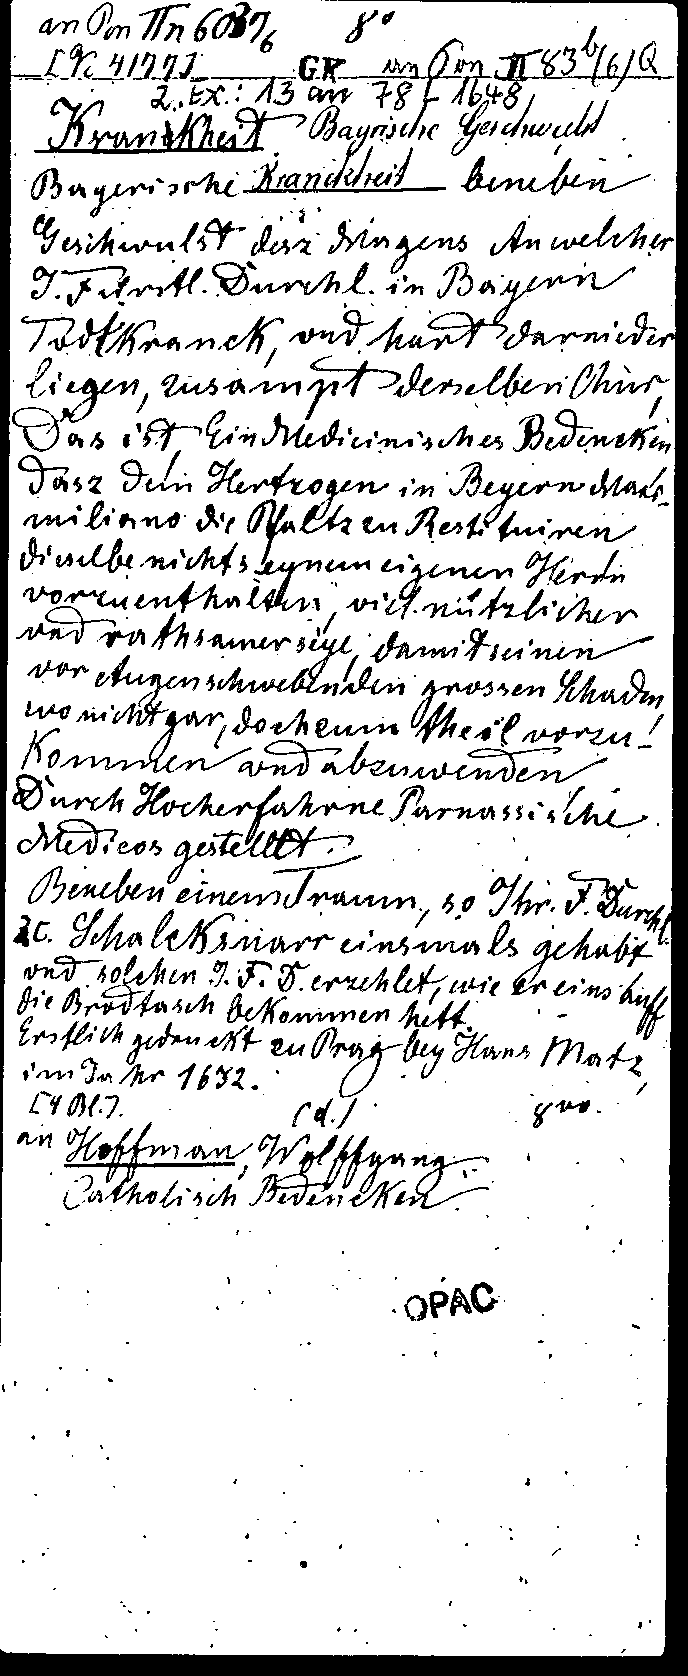 an Pon IIn 6037/6 8°
[K. 41777] GK an Pon II 83b(6) Q
2. Ex.: 13 an 78 - 1648
Kranckheit Bayrische Geschwulst
Bayerische Kranckheit beneben
Geschwulst desz Magens An welcher
I. Fürstl. Durchl. in Bayern
Todtkranck, vnd hart darnieder
liegen, zusampt derselben Chur,
Das ist, Ein Medicinisches Bedencken
dasz dem Hertzogen in Beyern Maxi-
miliano die Pfaltz zu Restituiren
dieselbe nicht seynem eigenen Herrn
vorzuenthalten, viel nützlicher
vnd rathsamer seye, damit seinen
vor Augen schwebenden grossen Schaden,
wo nicht gar, doch zum theil vorzu-
kommen vnd abzuwenden
Durch Hocherfahrne Parnassische
Medicos gestellt.
Beneben einem Traum, so Ihr. F. Durchl.
zc. Schalcksnarr einsmals gehabt
vnd solchen I. F. D. erzehlet, wie er eins auff
die Brodtasch bekommen hett.
Erstlich gedruckt zu Prag bey Hans Matz,
im Jahr 1632.
[4 Bl.]. (d.) 8vo.
an Hoffman, Wolffgang:
Catholisch Bedencken.
OPAC